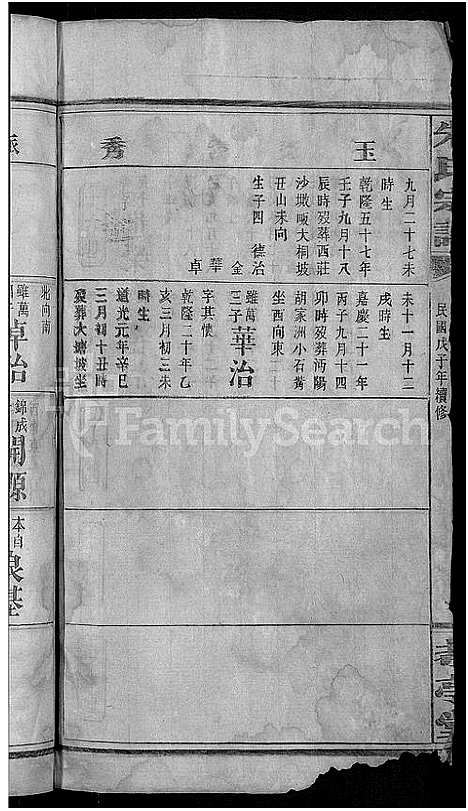 朱氏宗譜
民國戊子年續修
玉
秀
九月二十七未
時生
乾隆五十七年
壬子九月十八
辰時歿葬西莊
沙墩畈大桐坡
丑山未向
生子四 德治
金
華
卓
未十一月十二
戌時生
嘉慶二十一年
丙子九月十四
卯時歿葬沔陽
胡家洲小石
坐西向東
雖萬三子華治
字其懷
乾隆二十年乙
亥三月初三未
時生
道光元年辛巳
三月初十丑時
歿葬大塘坡坐
派
北向南
雖萬
卓治
錦成
開源
本自
良基
FamilySearch